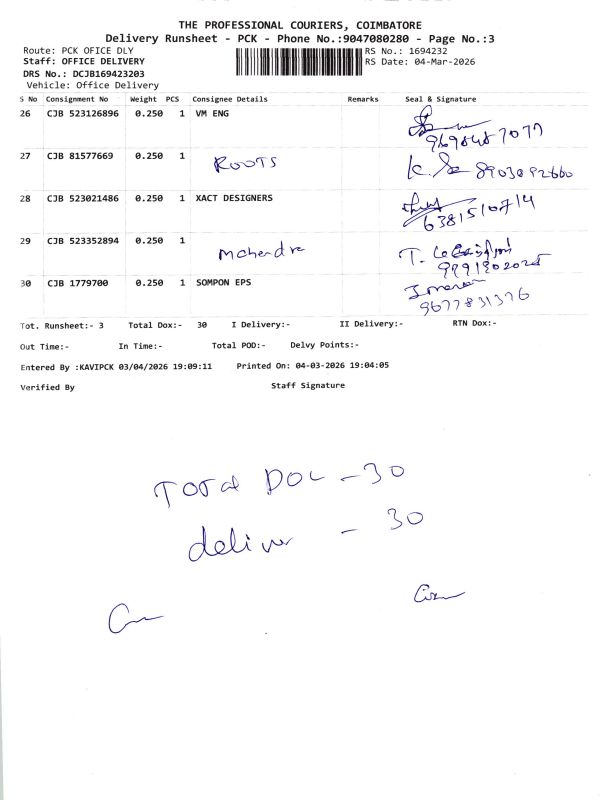 THE PROFESSIONAL COURIERS, COIMBATORE
Delivery Runsheet - PCK - Phone No.:9047080280 - Page No.:3
Route: PCK OFICE DLY RS No.: 1694232
Staff: OFFICE DELIVERY RS Date: 04-Mar-2026
DRS No.: DCJB169423203
Vehicle: Office Delivery
S No Consignment No Weight PCS Consignee Details Remarks Seal & Signature
26 CJB 523126896 0.250 1 VM ENG
27 CJB 81577669 0.250 1 ROOTS
28 CJB 523021486 0.250 1 XACT DESIGNERS
6381510714
29 CJB 523352894 0.250 1 Mahendra
30 CJB 1779700 0.250 1 SOMPON EPS
9677831376
Tot. Runsheet:- 3 Total Dox:- 30 I Delivery:- II Delivery:- RTN Dox:-
Out Time:- In Time:- Total POD:- Delvy Points:-
Entered By :KAVIPCK 03/04/2026 19:09:11 Printed On: 04-03-2026 19:04:05
Verified By Staff Signature
Total DOC - 30
deliver - 30